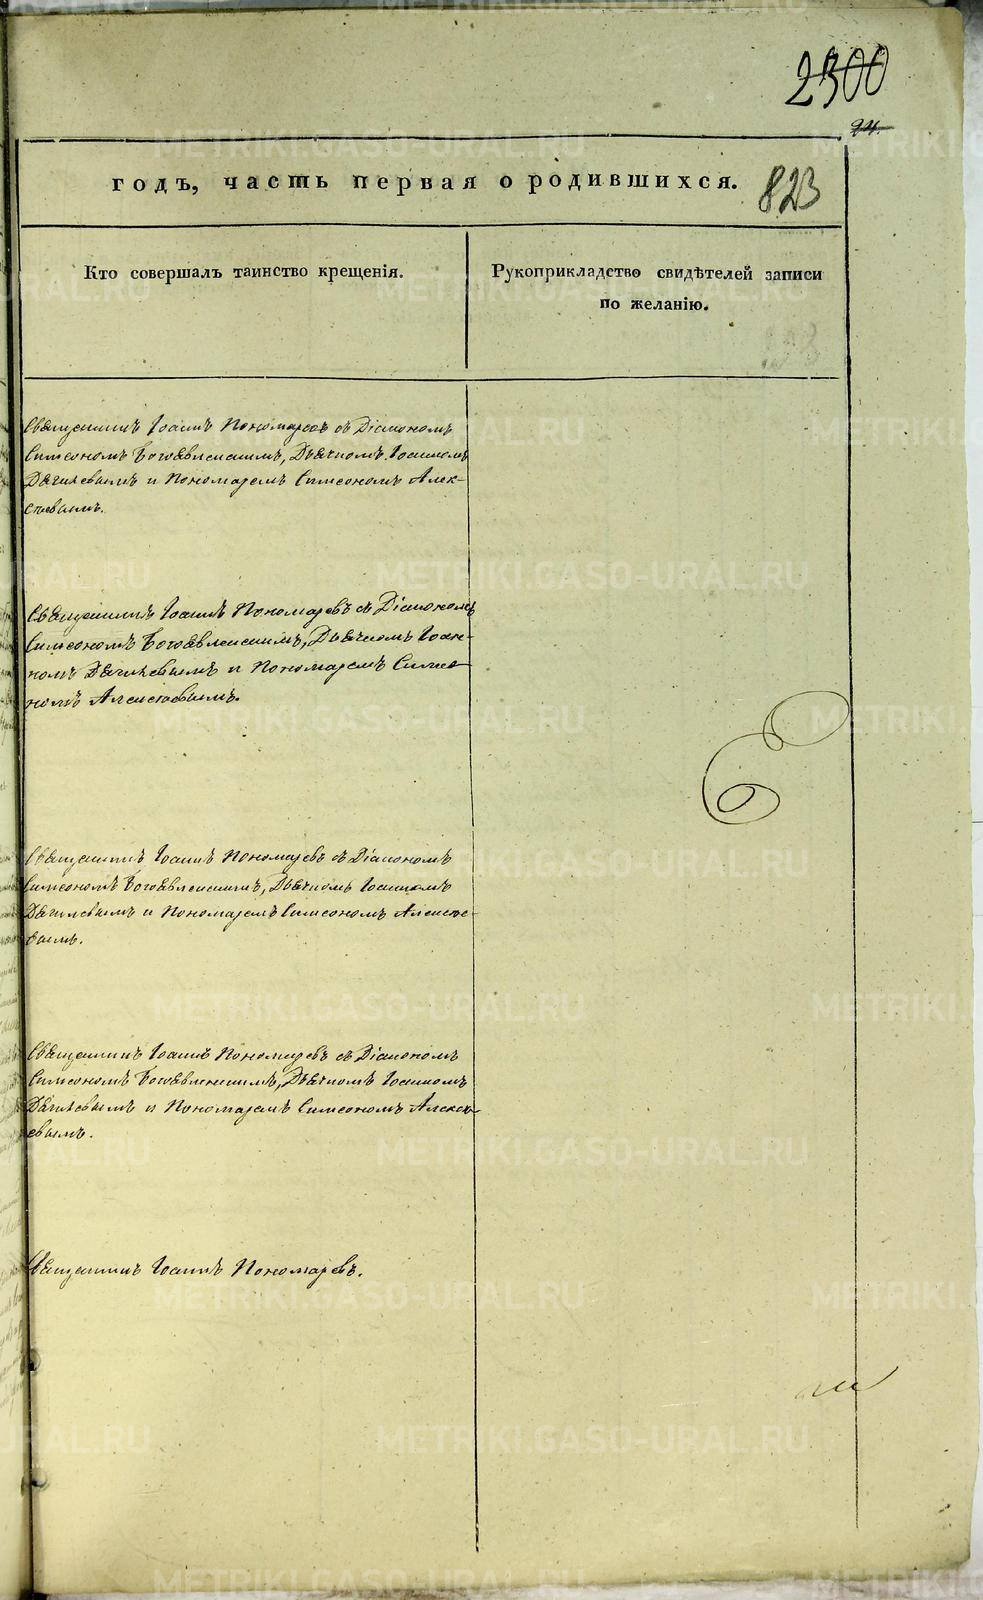 2300
24.
годъ, часть первая о родившихся.
823
Кто совершалъ таинство крещенія.
Рукоприкладство свидѣтелей записи
по желанію.
Священникъ Іоаннъ Пономаревъ съ Діакономъ
Симеономъ Богоявленскимъ, Дьячкомъ Іоанномъ
и Пономаремъ Симеономъ Алек-
сѣевымъ.
Священникъ Іоаннъ Пономаревъ съ Діакономъ
Симеономъ Богоявленскимъ, Дьячкомъ Іоан-
номъ и Пономаремъ Симео-
номъ Алексѣевымъ.
Священникъ Іоаннъ Пономаревъ съ Діакономъ
Симеономъ Богоявленскимъ, Дьячкомъ Іоанномъ
и Пономаремъ Симеономъ Алексѣе-
вымъ.
Священникъ Іоаннъ Пономаревъ съ Діакономъ
Симеономъ Богоявленскимъ, Дьячкомъ Іоанномъ
и Пономаремъ Симеономъ Алексѣ-
евымъ.
Священникъ Іоаннъ Пономаревъ.
METRIKI.GASO-URAL.RU